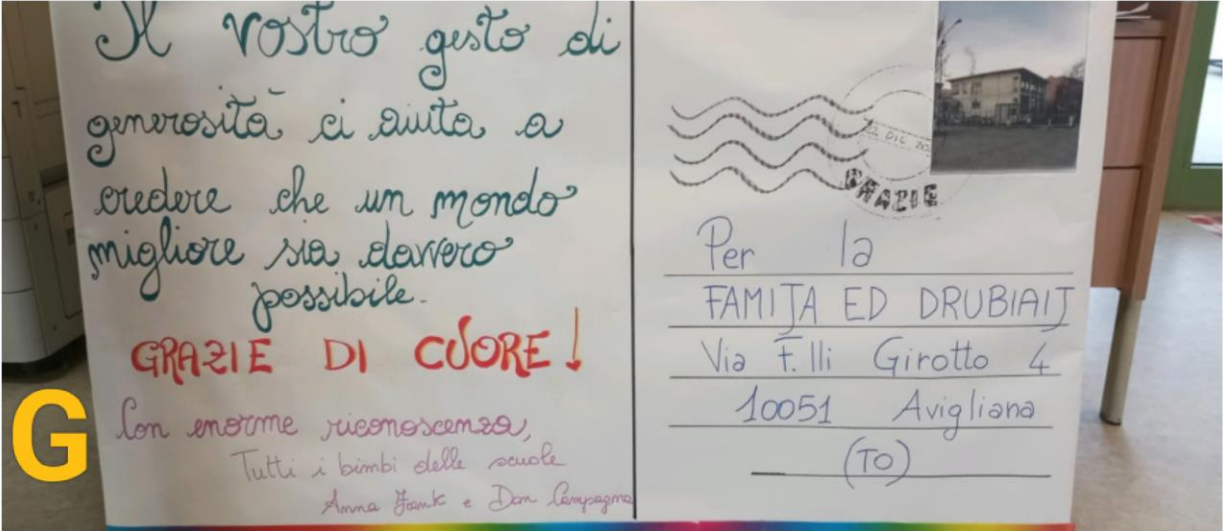 Il vostro gesto di
generosità ci aiuta a
credere che un mondo
migliore sia davvero
possibile.
GRAZIE DI CUORE!
Con enorme riconoscenza,
Tutti i bimbi delle scuole
Anna Frank e Don Campagna
G
22 DIC
GRAZIE
Per la
FAMIJA ED DRUBIAIJ
Via F.lli Girotto 4
10051 Avigliana
(TO)